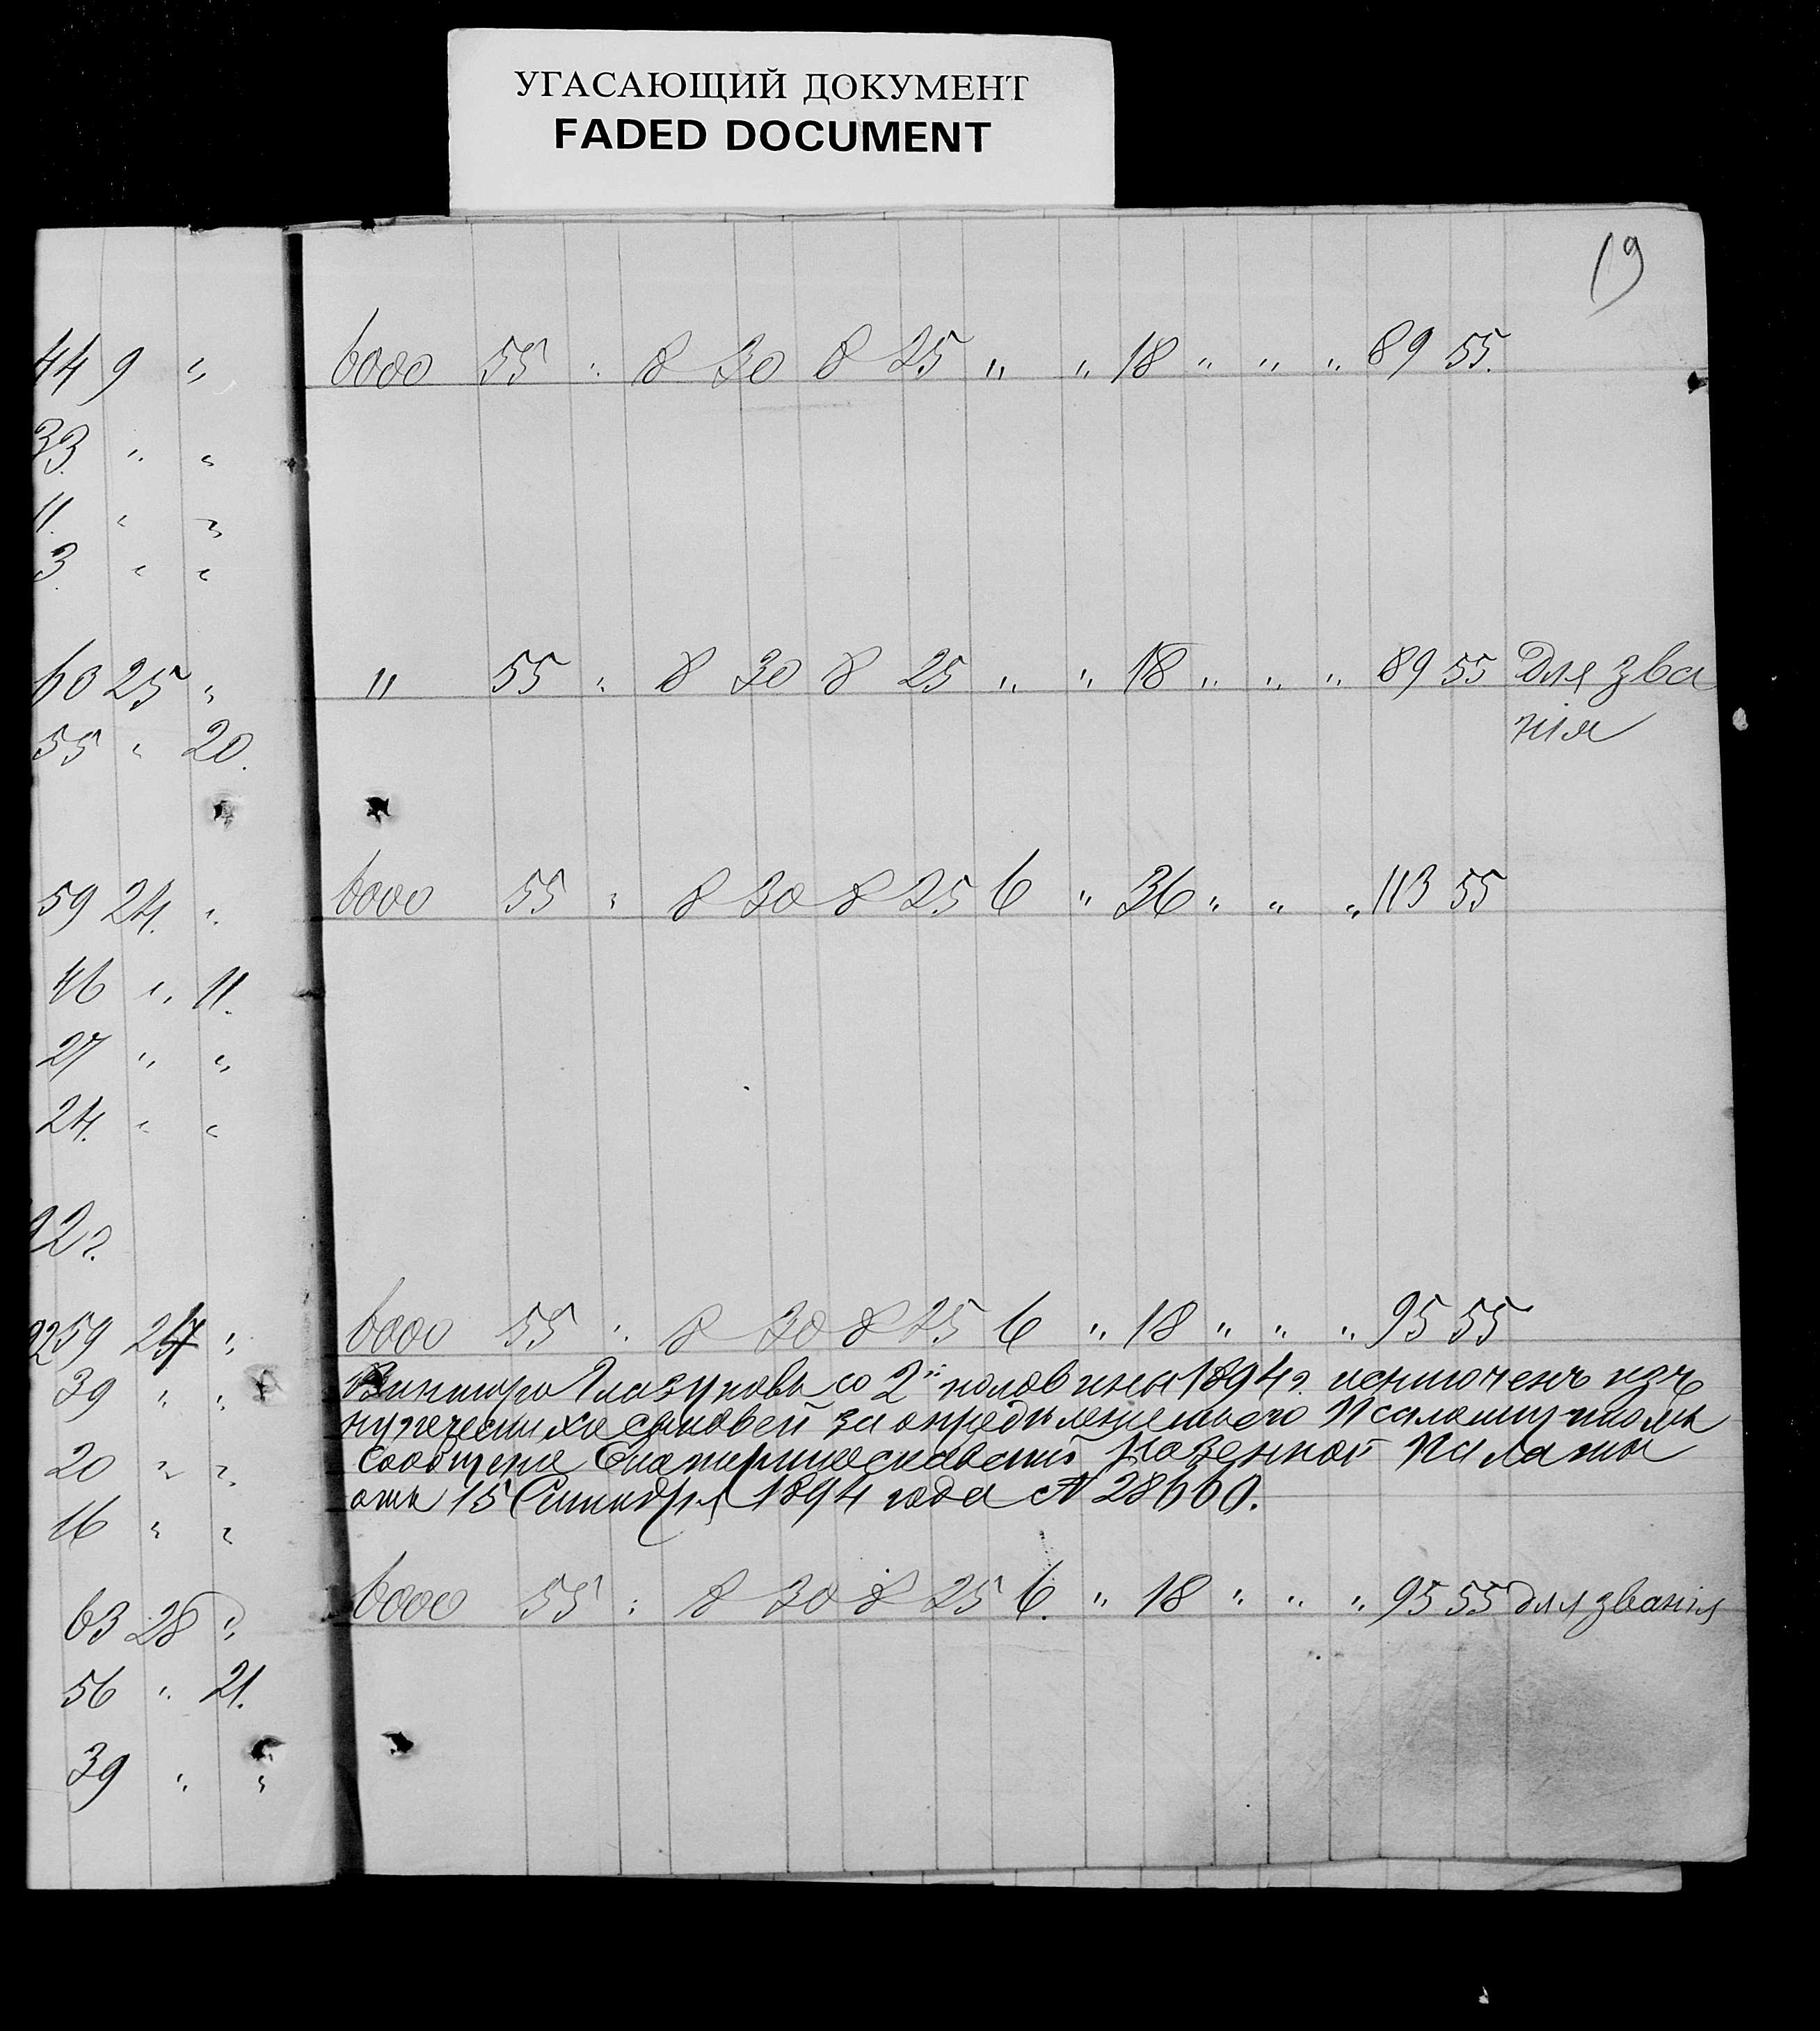 УГАСАЮЩИЙ ДОКУМЕНТ
FADED DOCUMENT
19
44 9 "
33 " "
11. " "
3 " "
60 25 "
55 " 20.
59 24. "
46 " 11.
27 " "
24. " "
92 г.
2259 24 "
39 " "
20 " "
16 " "
63 28 "
56 " 21.
39 " "
6000 55 " 8 30 8 25 " " 18 " " " 89 55.
" 55 " 8 30 8 25 " " 18 " " " 89 55 Для зва
нія
6000 55 " 8 30 8 25 6 " 36 " " " 113 55
6000 55 " 8 30 8 25 6 " 18 " " " 95 55
Викторъ Глазуновъ со 2й половины 1894 г. исключенъ изъ
купеческихъ сыновей за опредѣленіемъ его Псаломщикомъ
сообщеніе Екатеринославской Казенной Палаты
отъ 15 Сентября 1894 года № 28660.
6000 55 " 8 30 8 25 6. " 18 " " " 95 55 для званія